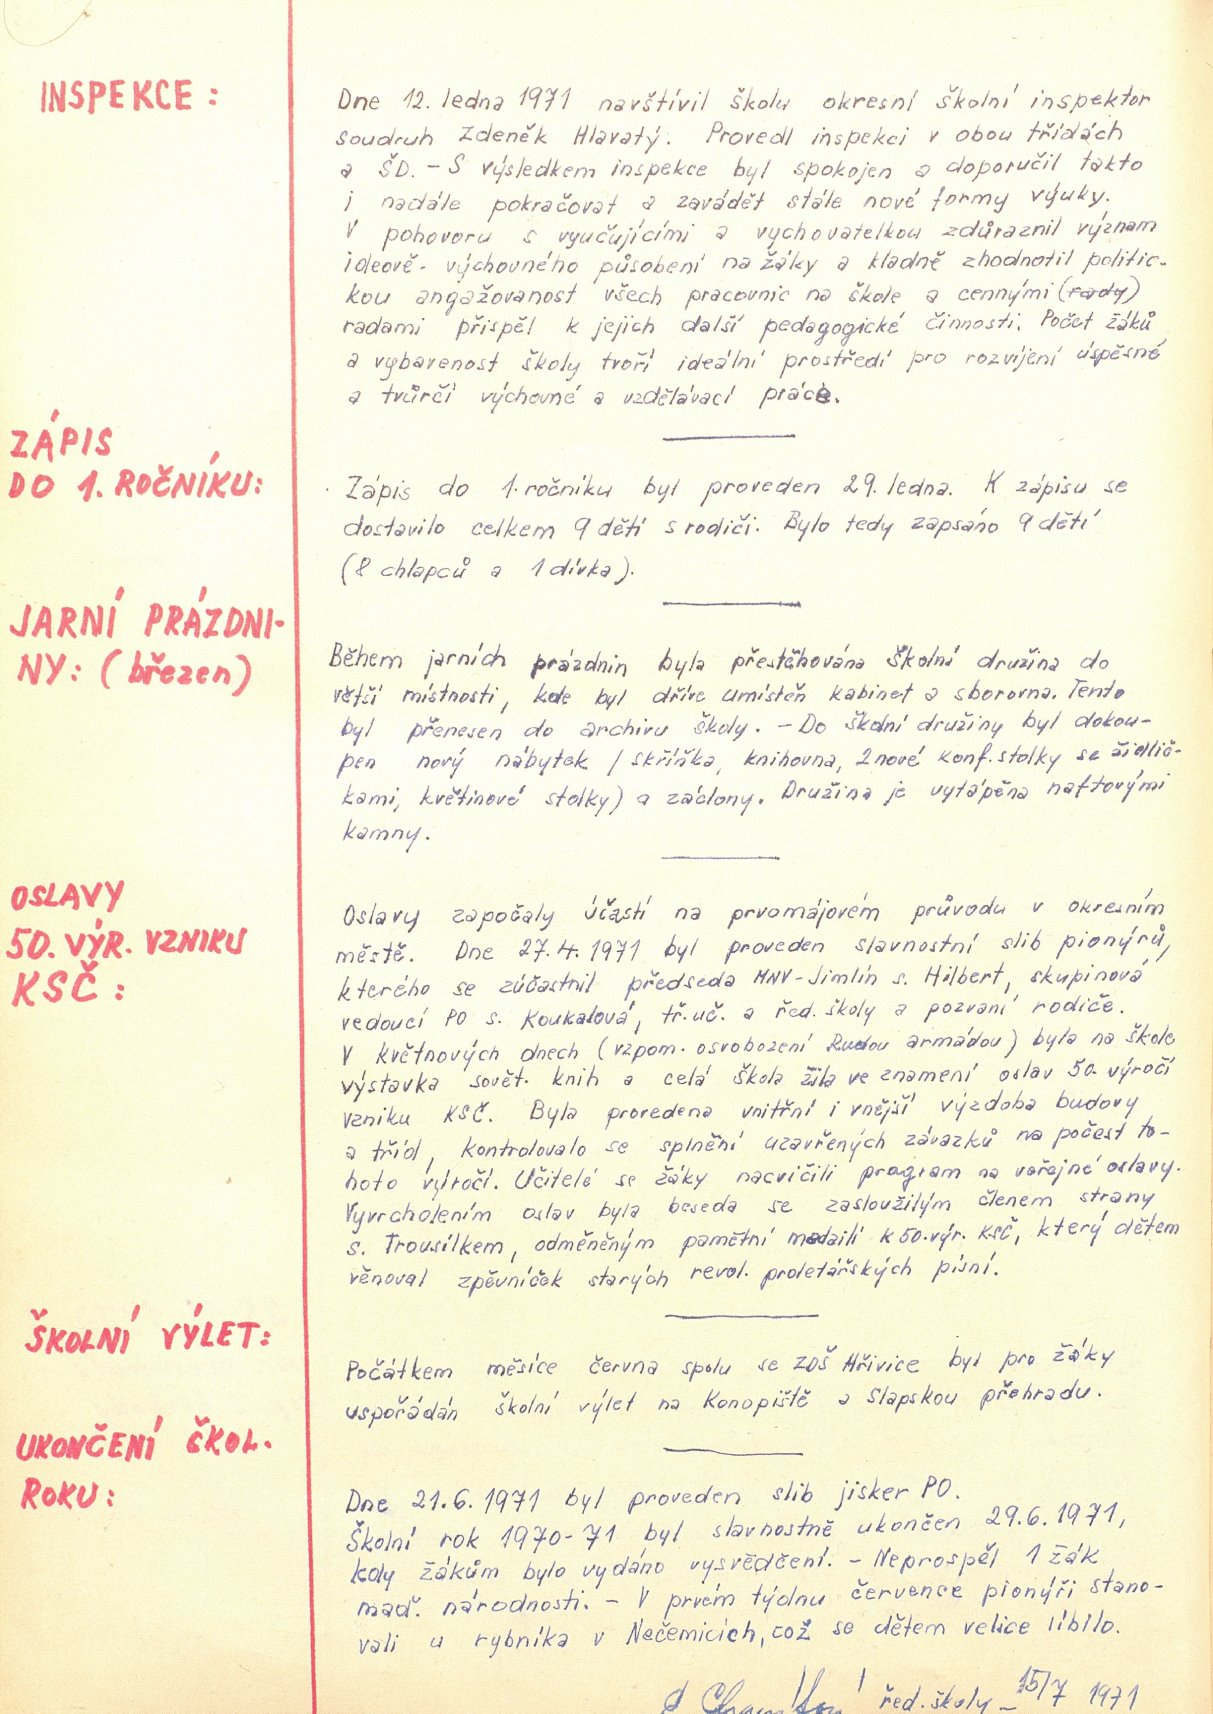 INSPEKCE:
Dne 12. ledna 1971 navštívil školu okresní školní inspektor
soudruh Zdeněk Hlavatý. Provedl inspekci v obou třídách
a ŠD. - S výsledkem inspekce byl spokojen a doporučil takto
i nadále pokračovat a zavádět stále nové formy výuky.
V pohovoru s vyučujícími a vychovatelkou zdůraznil význam
ideově-výchovného působení na žáky a kladně zhodnotil politic-
kou angažovanost všech pracovnic na škole a cennými (rady)
radami přispěl k jejich další pedagogické činnosti. Počet žáků
a vybavenost školy tvoří ideální prostředí pro rozvíjení úspěšné
a tvůrčí výchovné a vzdělávací práce.
ZÁPIS
DO 1. ROČNÍKU:
Zápis do 1. ročníku byl proveden 29. ledna. K zápisu se
dostavilo celkem 9 dětí s rodiči. Bylo tedy zapsáno 9 dětí
(8 chlapců a 1 dívka).
JARNÍ PRÁZDNI-
NY: (březen)
Během jarních prázdnin byla přestěhována školní družina do
větší místnosti, kde byl dříve umístěn kabinet a sborovna. Tento
byl přenesen do archivu školy. - Do školní družiny byl dokou-
pen nový nábytek /skříňka, knihovna, 2 nové konf. stolky se židlič-
kami, květinové stolky) a záclony. Družina je vytápěna naftovými
kamny.
OSLAVY
50. VÝR. VZNIKU
KSČ:
Oslavy započaly účastí na prvomájovém průvodu v okresním
městě. Dne 27.4.1971 byl proveden slavnostní slib pionýrů,
kterého se zúčastnil předseda MNV-Jimlín s. Hilbert, skupinová
vedoucí PO s. Koukalová, tř. uč. a řed. školy a pozvaní rodiče.
V květnových dnech (vzpom. osvobození Rudou armádou) byla na škole
výstavka sovět. knih a celá škola žila ve znamení oslav 50. výročí
vzniku KSČ. Byla provedena vnitřní i vnější výzdoba budovy
a tříd, kontrolovalo se splnění uzavřených závazků na počest to-
hoto výročí. Učitelé se žáky nacvičili program na veřejné oslavy.
Vyvrcholením oslav byla beseda se zasloužilým členem strany
s. Trousílkem, odměněným pamětní medailí k 50. výr. KSČ, který dětem
věnoval zpěvníček starých revol. proletářských písní.
ŠKOLNÍ VÝLET:
Počátkem měsíce června spolu se ZDŠ Hřivice byl pro žáky
uspořádán školní výlet na Konopiště a Slapskou přehradu.
UKONČENÍ ŠKOL.
ROKU:
Dne 21.6.1971 byl proveden slib jisker PO.
Školní rok 1970-71 byl slavnostně ukončen 29.6.1971,
kdy žákům bylo vydáno vysvědčení. - Neprospěl 1 žák
maď. národnosti. - V prvém týdnu července pionýři stano-
vali u rybníka v Nečemicích, což se dětem velice líbilo.
řed. školy - 15/7 1971